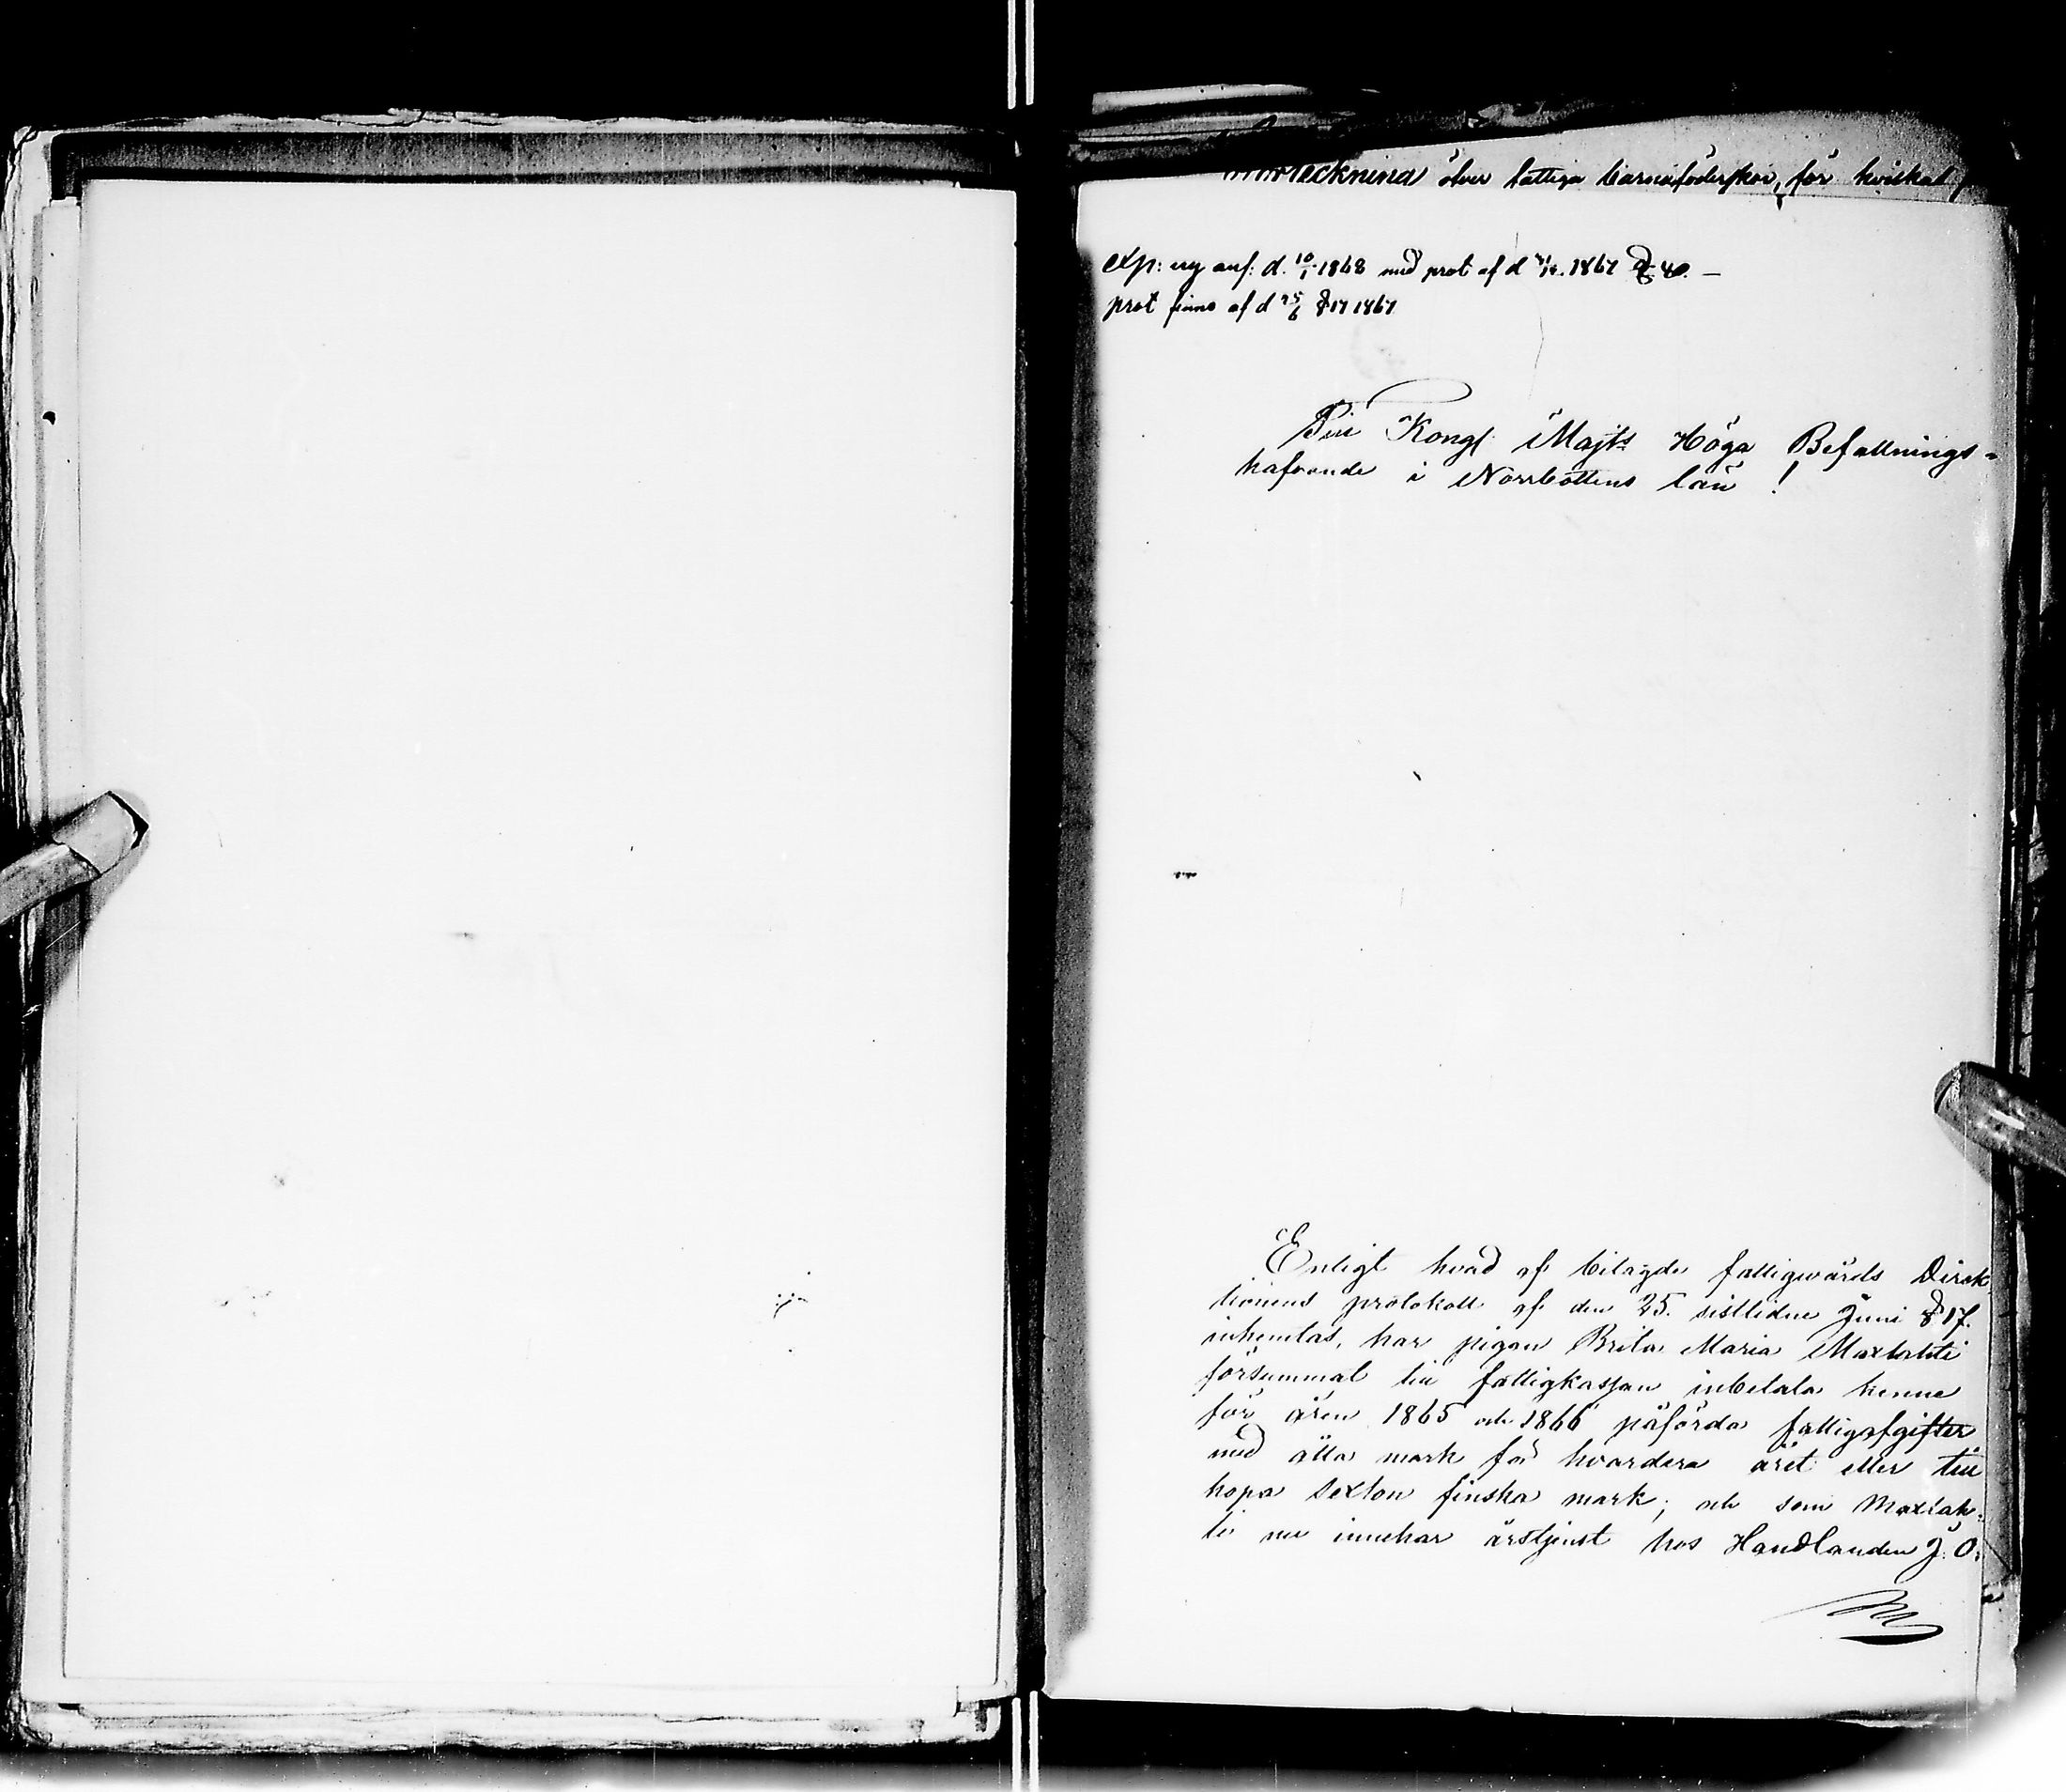 Förteckning öfver fattiga barnaföderskor, för hvilkas
exp: ny anf: d. 10/1 1868 med prot af d 31/12. 1867 § 40. —
prot finns af d 25/6 § 17 1867
Till Kongl Majts Höga Befallnings-
hafvande i Norrbottens län!
Enligt hvad af bilagde fattigvårds Direk
tionens protokoll af den 25. sistlidne Juni § 17.
inhemtas, har pigan Brita Maria Maxlahti
försummat till fattigkassan inbetala henne
för åren 1865 och 1866 påförda fattigafgifter
med åtta mark för hvardera året eller till
hopa sexton finska mark; och som Maxlah-
ti nu innehar årstjenst hos Handlanden J. O.